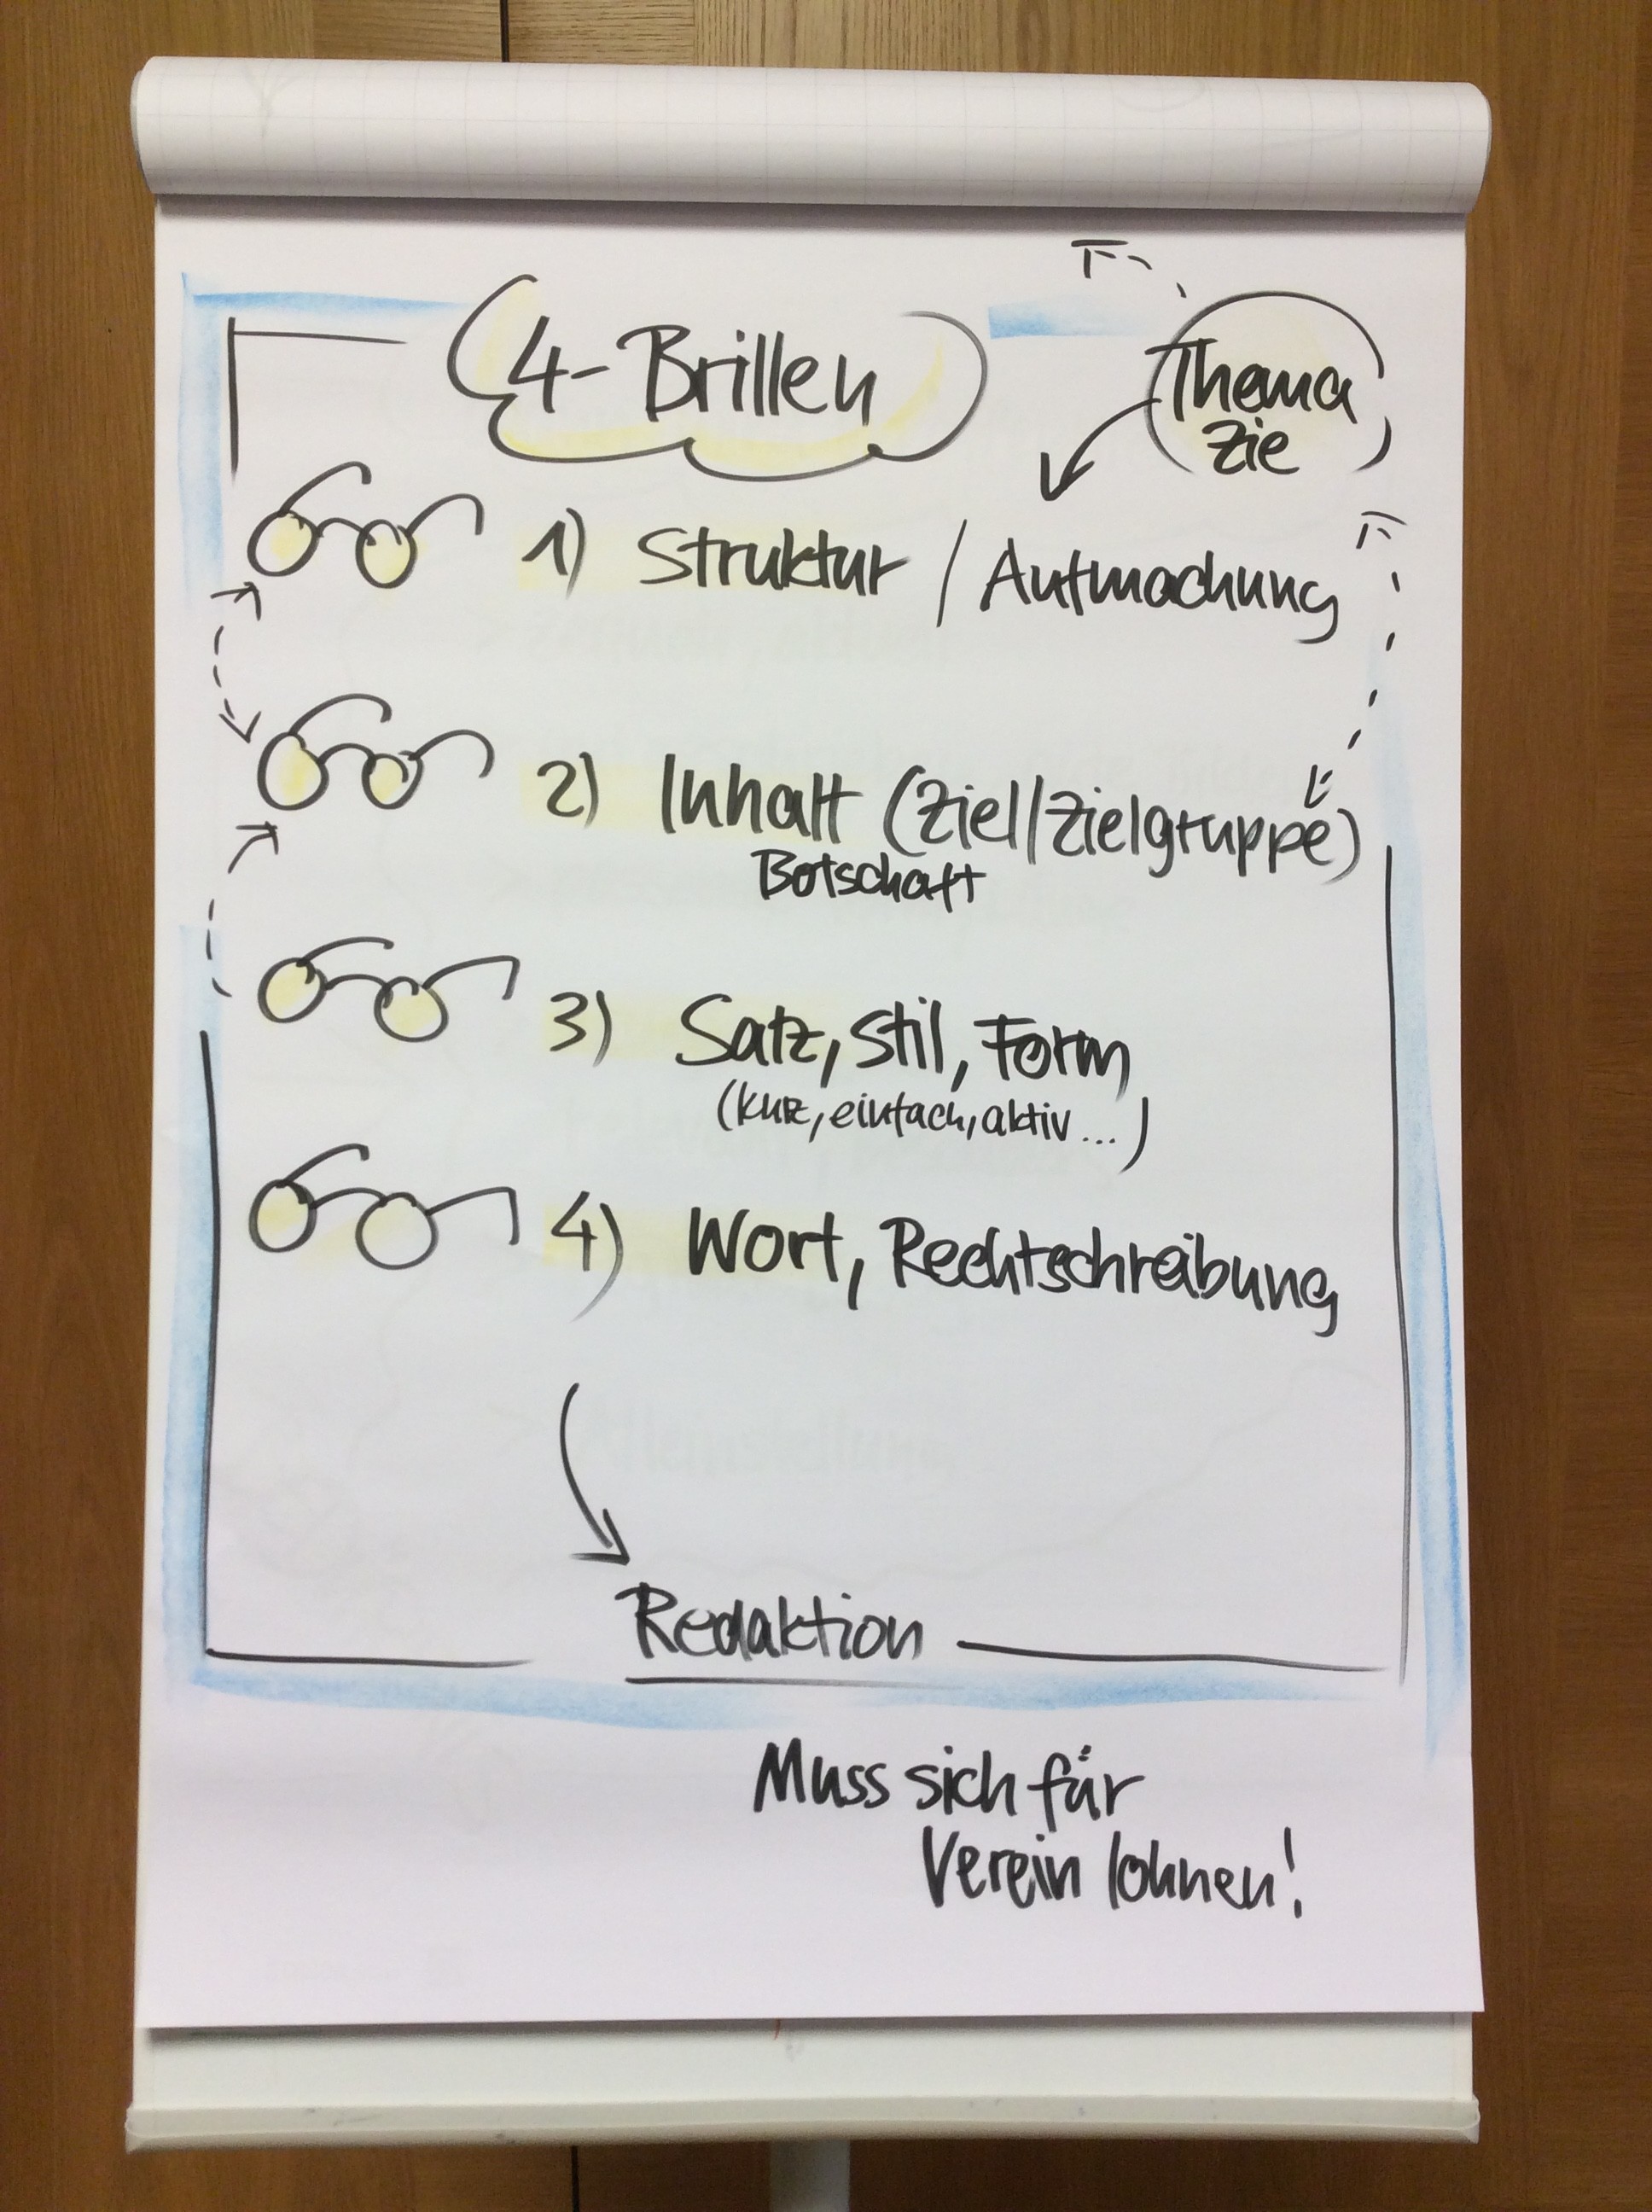 4-Brillen
Thema
Zie
1) Struktur / Aufmachung
2) Inhalt (Ziel/Zielgruppe)
Botschaft
3) Satz, Stil, Form
(kurz, einfach, aktiv ...)
4) Wort, Rechtschreibung
Redaktion
Muss sich für
Verein lohnen!